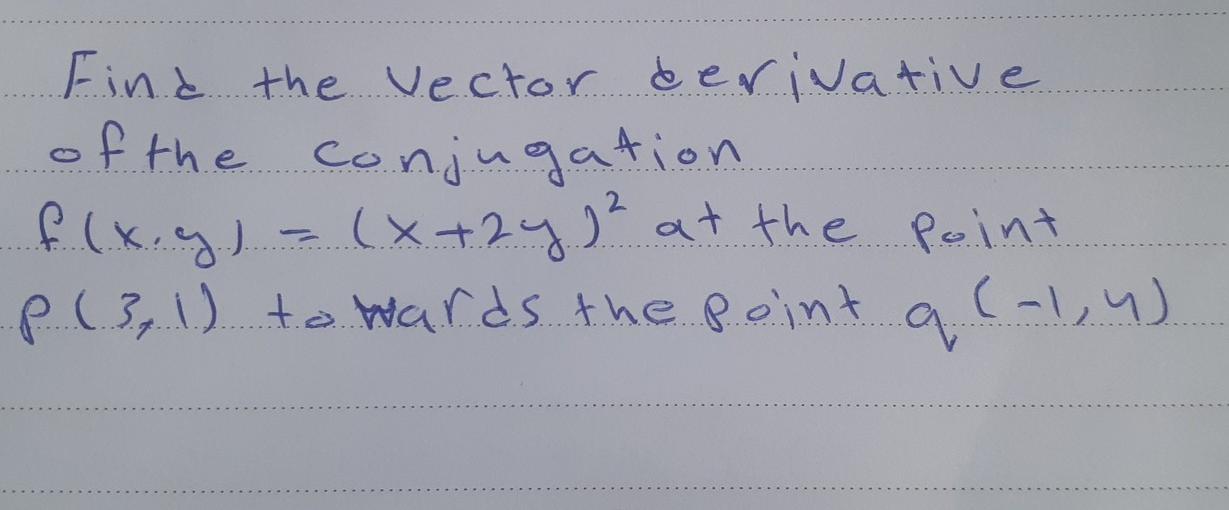 Find the vector derivative
of the conjugation
f(x,y) = (x+2y)² at the point
p(3,1) towards the point q(-1,4)